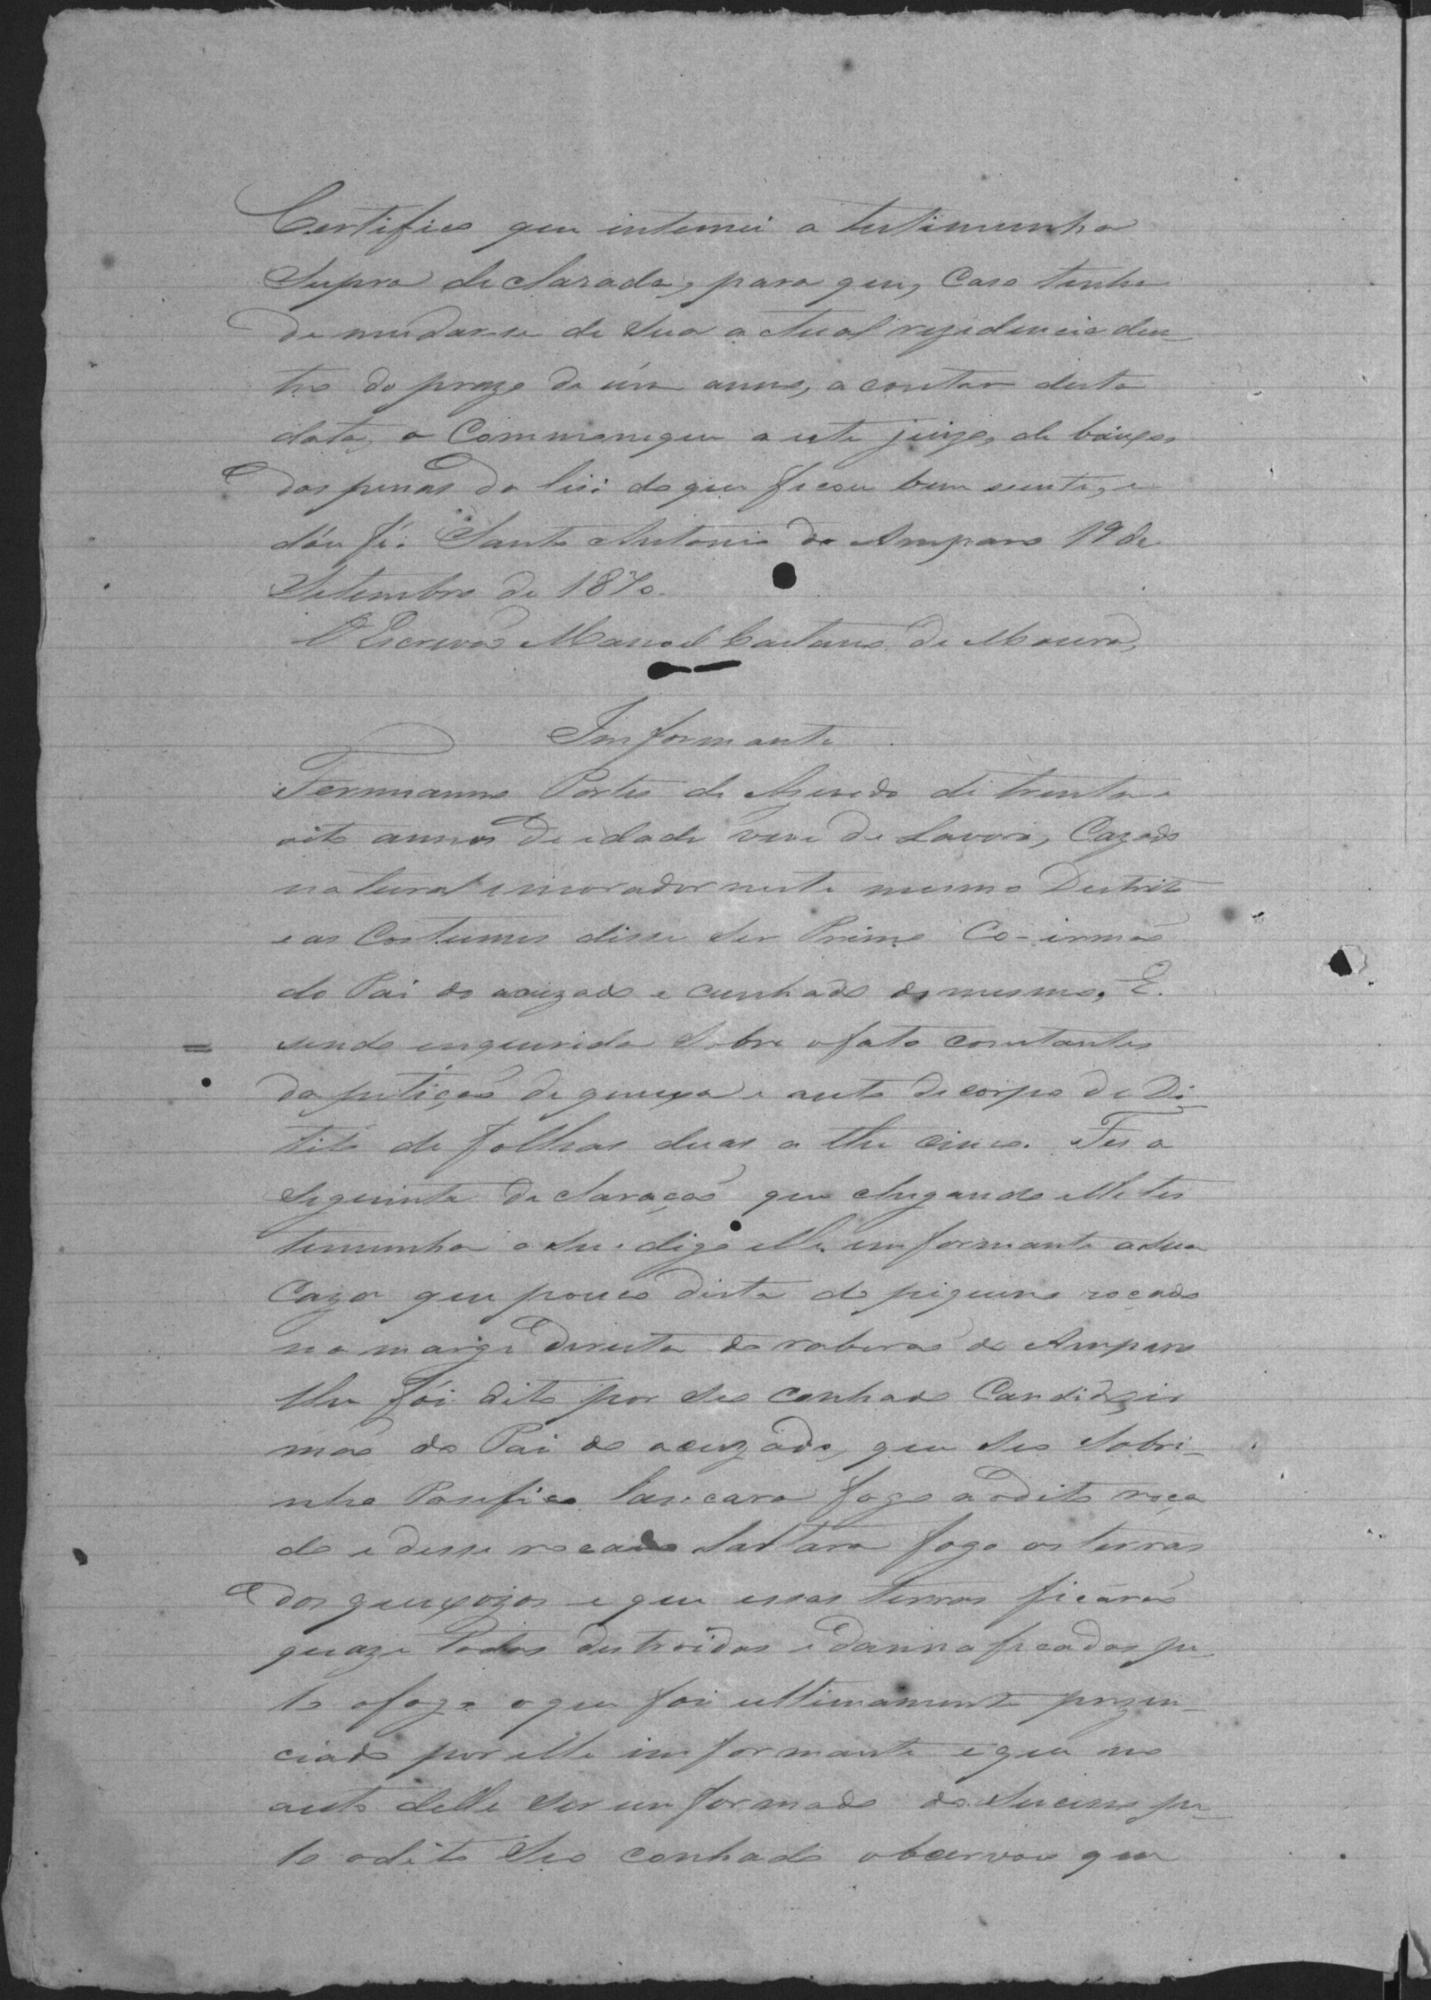 Certifico que intemei a testimunha
Supra declarada, para que, Caso tenha
de mudar-se de Sua actual rezidencia den-
tro do prazo de úm anno, a contar desta
data, o Communique a este juizo, de baixo
das penas da lei: do que ficou bem sciente, e
dóu fé. Santo Antonio do Amparo 19 de
Setembro de 1870.
O Escrivão Manoel Caetano de Moura,
Imformante
Fermianno Portes de Azevedo de trinta e
oito annos de idade vive de Lavora, Cazado
natural e morador neste mesmo Destrito
e aos Costumes disse ser Primo Co-irmão
do Pai do acuzado e cunhado do mesmo, E.
sendo enquerido Sobre o fato constantes
da petição de queixa e auto de corpo de De-
lito de folhas duas a the cinco. Fes a
Seguinte declaração que chegando elle tes
temunha a su. digo elle imformante a sua
Caza que pouco dista do piqueno roçado
na marge direita do roberão do Amparo
lhe fói dito por seo conhado Candido ir
mão do Pai do acuzado, que seo Sobri-
nho Pacifico lançara fogo ao dito roça
do e desse rocado Saltara fogo as terras
dos queixozos e que essas terras ficarão
quaze todas destroidas e dannaficadas pe-
lo o fogo o que foi ultimamente prezen-
ciado por elle imformante e que no
auto delle ser imformado do Sucesso pe-
lo o dito Seo conhado obcervou que